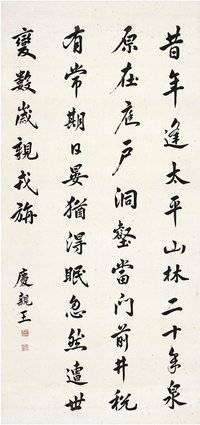 昔年逢太平山林二十年泉
原在庭户洞壑當门前井税
有常期日晏猶得眠忽然遭世
變數歲親戎旃
慶親王